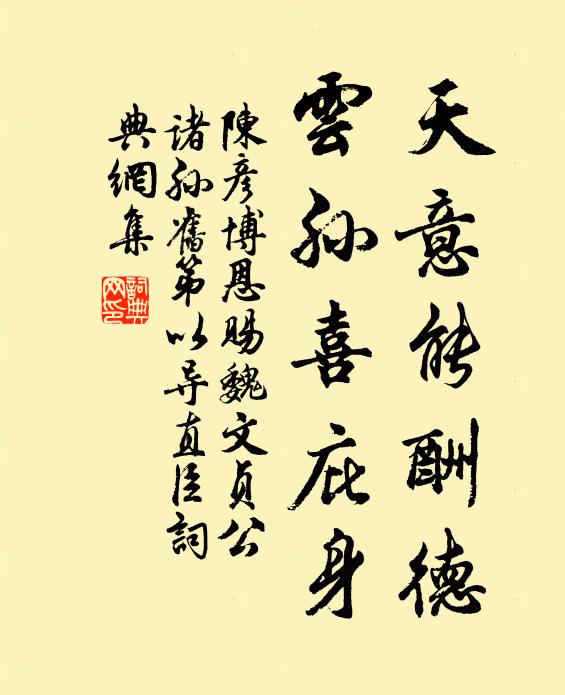 天意能酬德
雲孫喜庇身
陳彦博恩賜魏文貞公
諸孫舊第以导直臣詞
典網集
詞典
网印